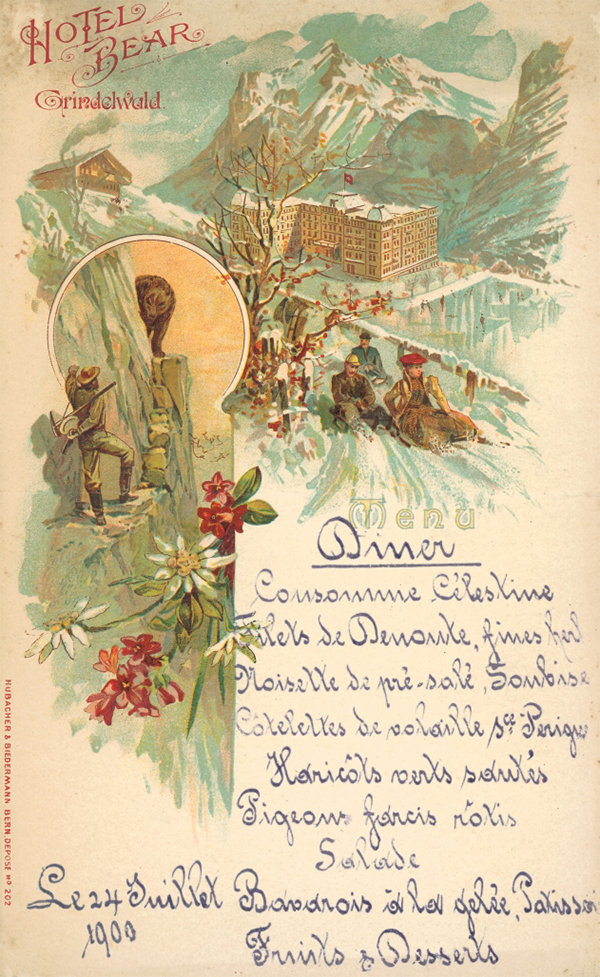 HOTEL
BEAR
Grindelwald.
Menu
Diner
Consomme Célestine
Filets de Denoute, fines herb
Noisette de pré-salé, Soubise
Côtelettes de volaille sce Perigu
Haricôts verts sautés
Pigeons farcis rôtis
Salade
Le 24 Juillet
1900
Bavarois à la gelée, Patisseri
Fruits & Desserts
HUBACHER & BIEDERMANN BERN. DEPOSE No 202